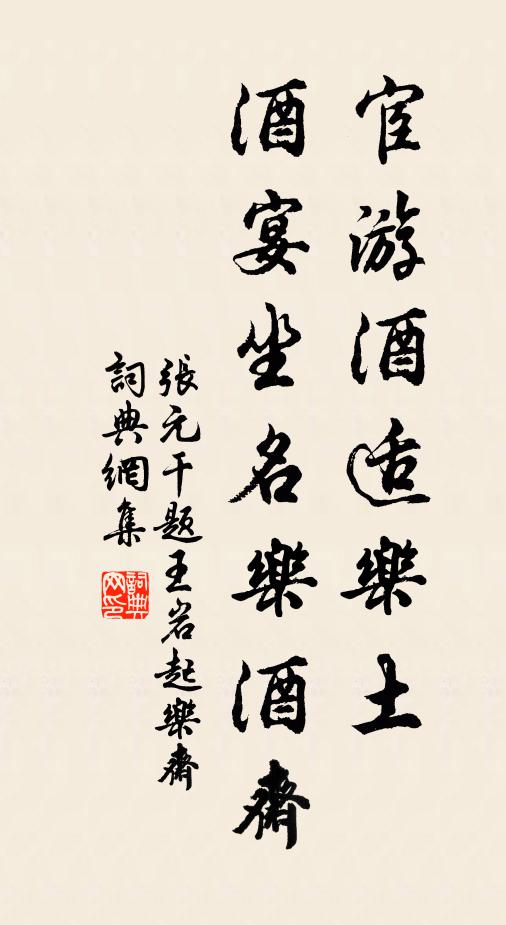 宦游酒适樂土
酒宴坐名樂酒齋
張元干題王岩起樂齋
詞典網集
詞典网印